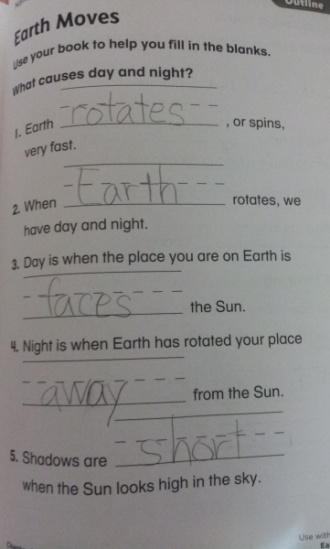 Outline
Earth Moves
Use your book to help you fill in the blanks.
What causes day and night?
1. Earth rotates, or spins,
very fast.
2. When Earth rotates, we
have day and night.
3. Day is when the place you are on Earth is
faces the Sun.
4. Night is when Earth has rotated your place
away from the Sun.
5. Shadows are short
when the Sun looks high in the sky.
Use with